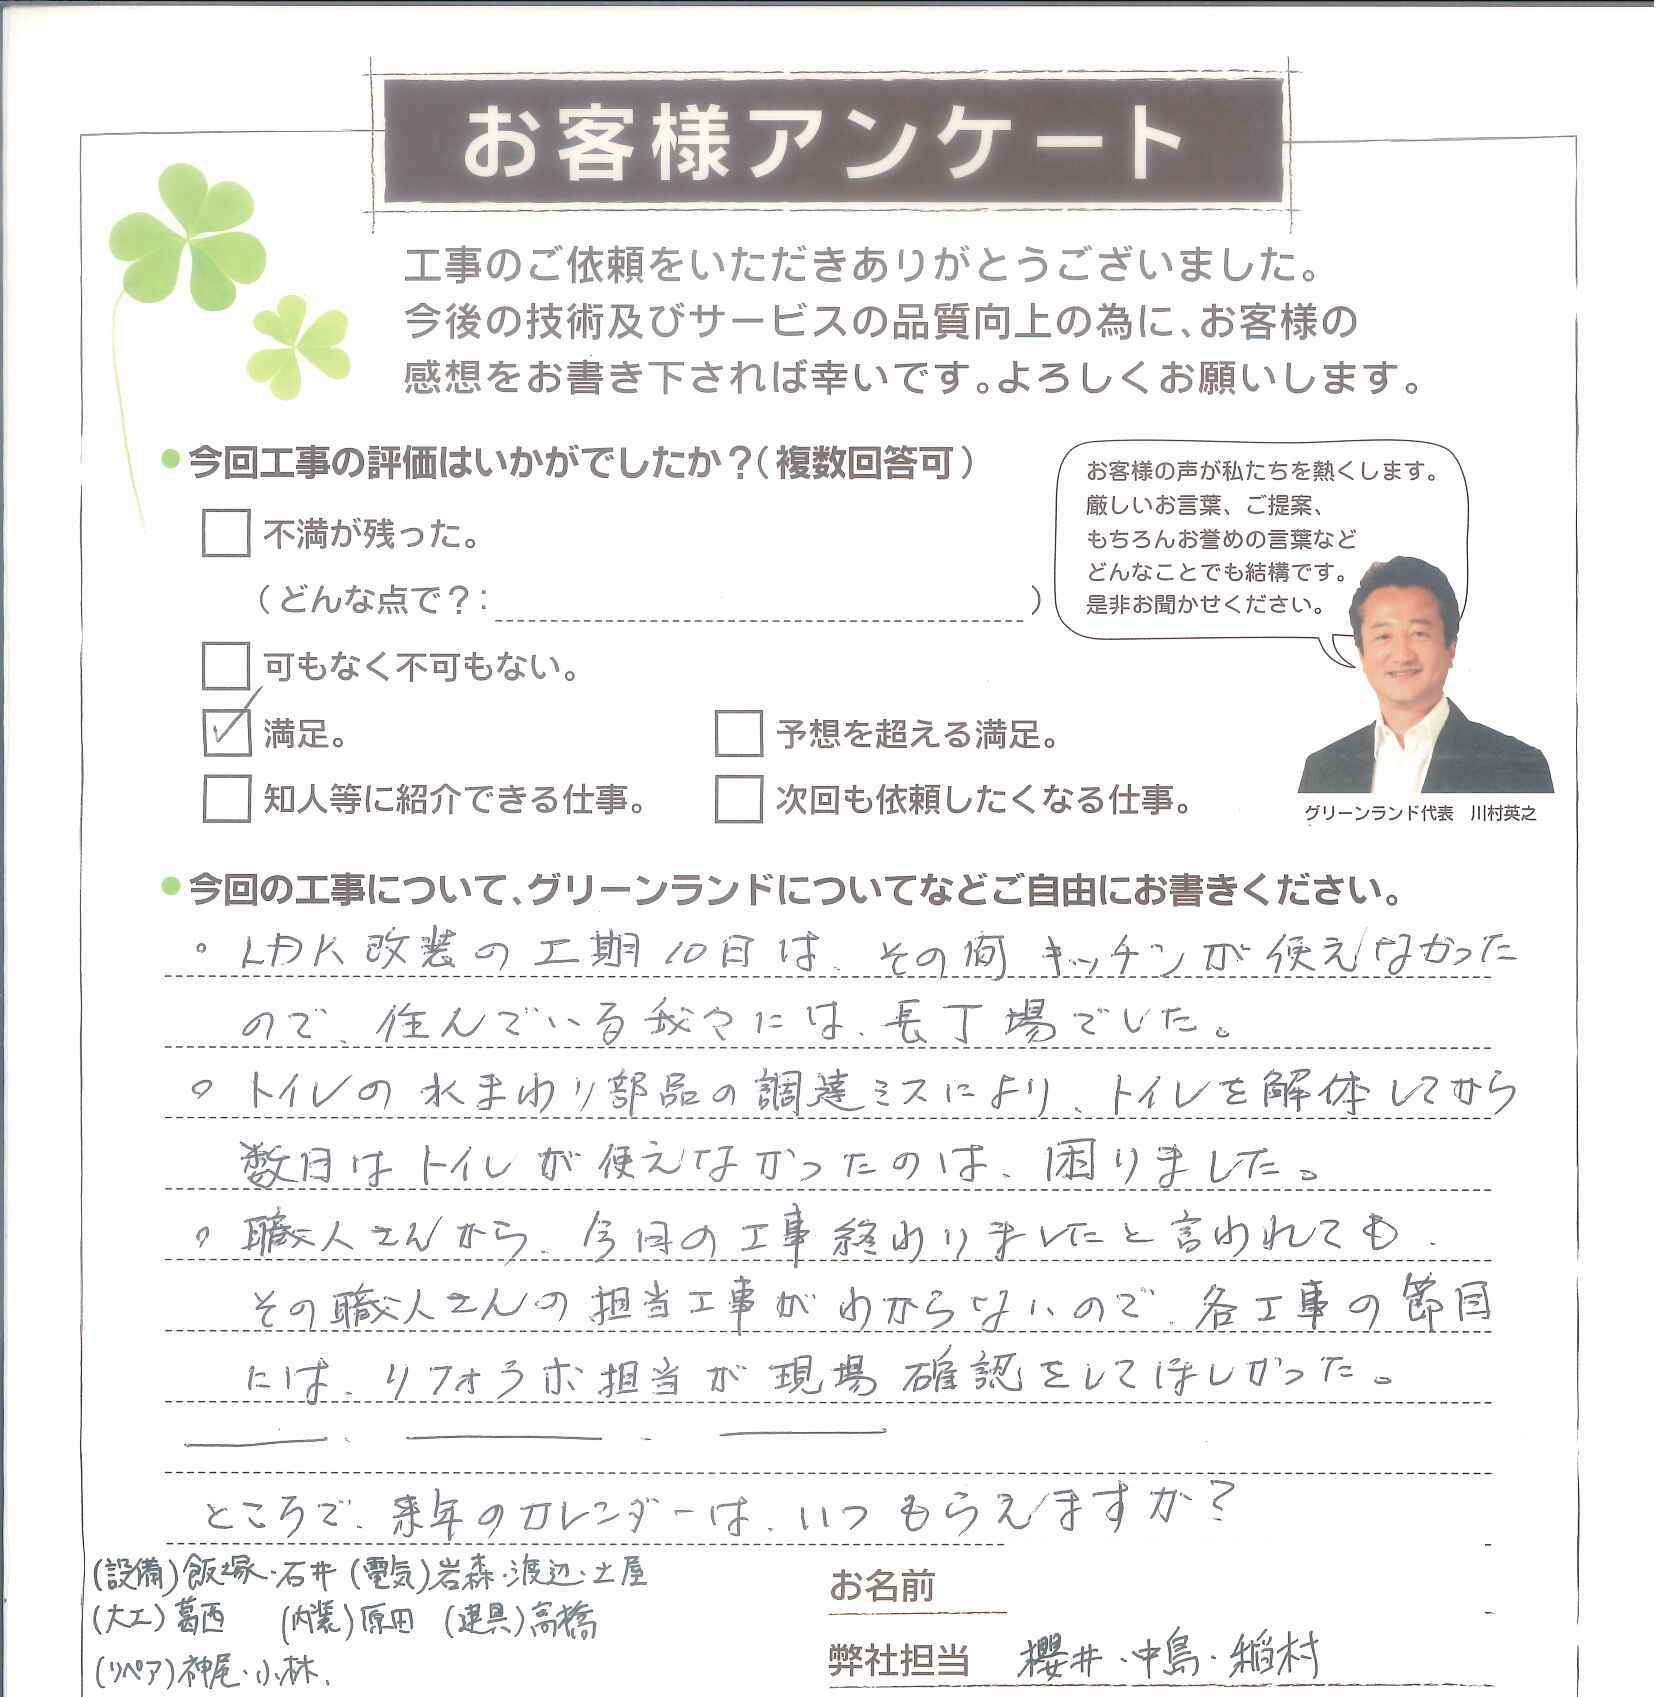 お客様アンケート
工事のご依頼をいただきありがとうございました。
今後の技術及びサービスの品質向上の為に、お客様の
感想をお書き下されば幸いです。よろしくお願いします。
今回工事の評価はいかがでしたか？（複数回答可）
不満が残った。
（どんな点で？：　）
可もなく不可もない。
満足。
予想を超える満足。
知人等に紹介できる仕事。
次回も依頼したくなる仕事。
お客様の声が私たちを熱くします。
厳しいお言葉、ご提案、
もちろんお誉めの言葉など
どんなことでも結構です。
是非お聞かせください。
グリーンランド代表　川村英之
今回の工事について、グリーンランドについてなどご自由にお書きください。
。LDK改装の工期10日は、その間キッチンが使えなかった
ので、住んでいる我々には、長丁場でした。
。トイレの水まわり部品の調達ミスにより、トイレを解体してから
数日はトイレが使えなかったのは、困りました。
。職人さんから、今日の工事終わりましたと言われても、
その職人さんの担当工事がわからないので、各工事の節目
には、リフォラボ担当が現場確認をしてほしかった。
ところで、来年のカレンダーは、いつもらえますか？
(設備)飯塚・石井 (電気)岩森・渡辺・土屋
(大工)葛西 (内装)原田 (建具)高橋
(リペア)神尾・小林.
お名前
弊社担当 櫻井・中島・稲村